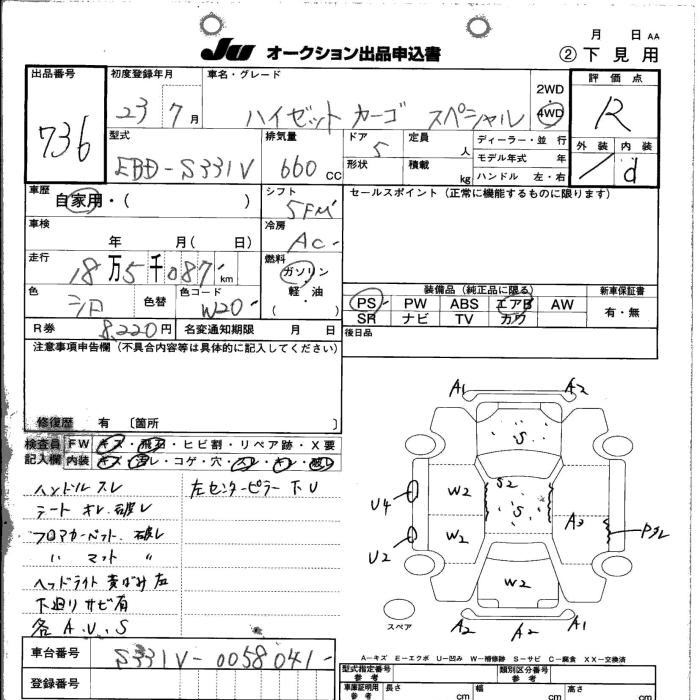 月 日 AA
JU オークション出品申込書 ② 下見用
出品番号 736
初度登録年月 23 7月
車名・グレード ハイゼット カーゴ スペシャル
2WD
4WD
評価点 R
外装 内装 d
型式 EBD-S331V
排気量 660 CC
ドア 5
形状
定員 人
積載 kg
ディーラー・並行
モデル年式 年
ハンドル 左・右
車歴 自家用・( )
シフト 5FM
セールスポイント (正常に機能するものに限ります)
車検 年 月( 日)
冷房 AC
走行 18万5千087km
燃料 ガソリン
軽・油
( )
色 シロ 色替
色コード W20
装備品 (純正品に限る)
PS PW ABS エアB AW
SR ナビ TV カワ
新車保証書
有・無
R券 8,220円 名変通知期限 月 日
後日品
注意事項申告欄 (不具合内容等は具体的に記入してください)
修復歴 有 〔箇所 〕
検査員記入欄
FW キズ・飛石・ヒビ割・リペア跡・X要
内装 キズ・汚レ・コゲ・穴・スレ・キレ・破レ
ハンドル スレ
左センターピラー下U
シート オレ.破レ
フロアカーペット.破レ
〃 マット 〃
ヘッドライト 黄ばみ 左
下廻り サビ有
各 A.U.S
A1 A2
S
U4 W2 S2 S A3
U2 W2
W2
スペア A2 A2 A1
車台番号 S331V-0058041-
登録番号
A-キズ E-エクボ U-凹み W-補修跡 S-サビ C-腐食 XX-交換済
型式指定番号 参考
類別区分番号 参考
車庫証明用 参考 長さ cm 幅 cm 高さ cm